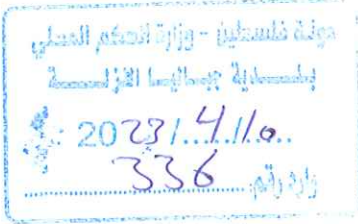 دولة فلسطين - وزارة الحكم المحلي
بلدية جباليا النزلة
: 2023/.4./10..
وارد رقم: 336